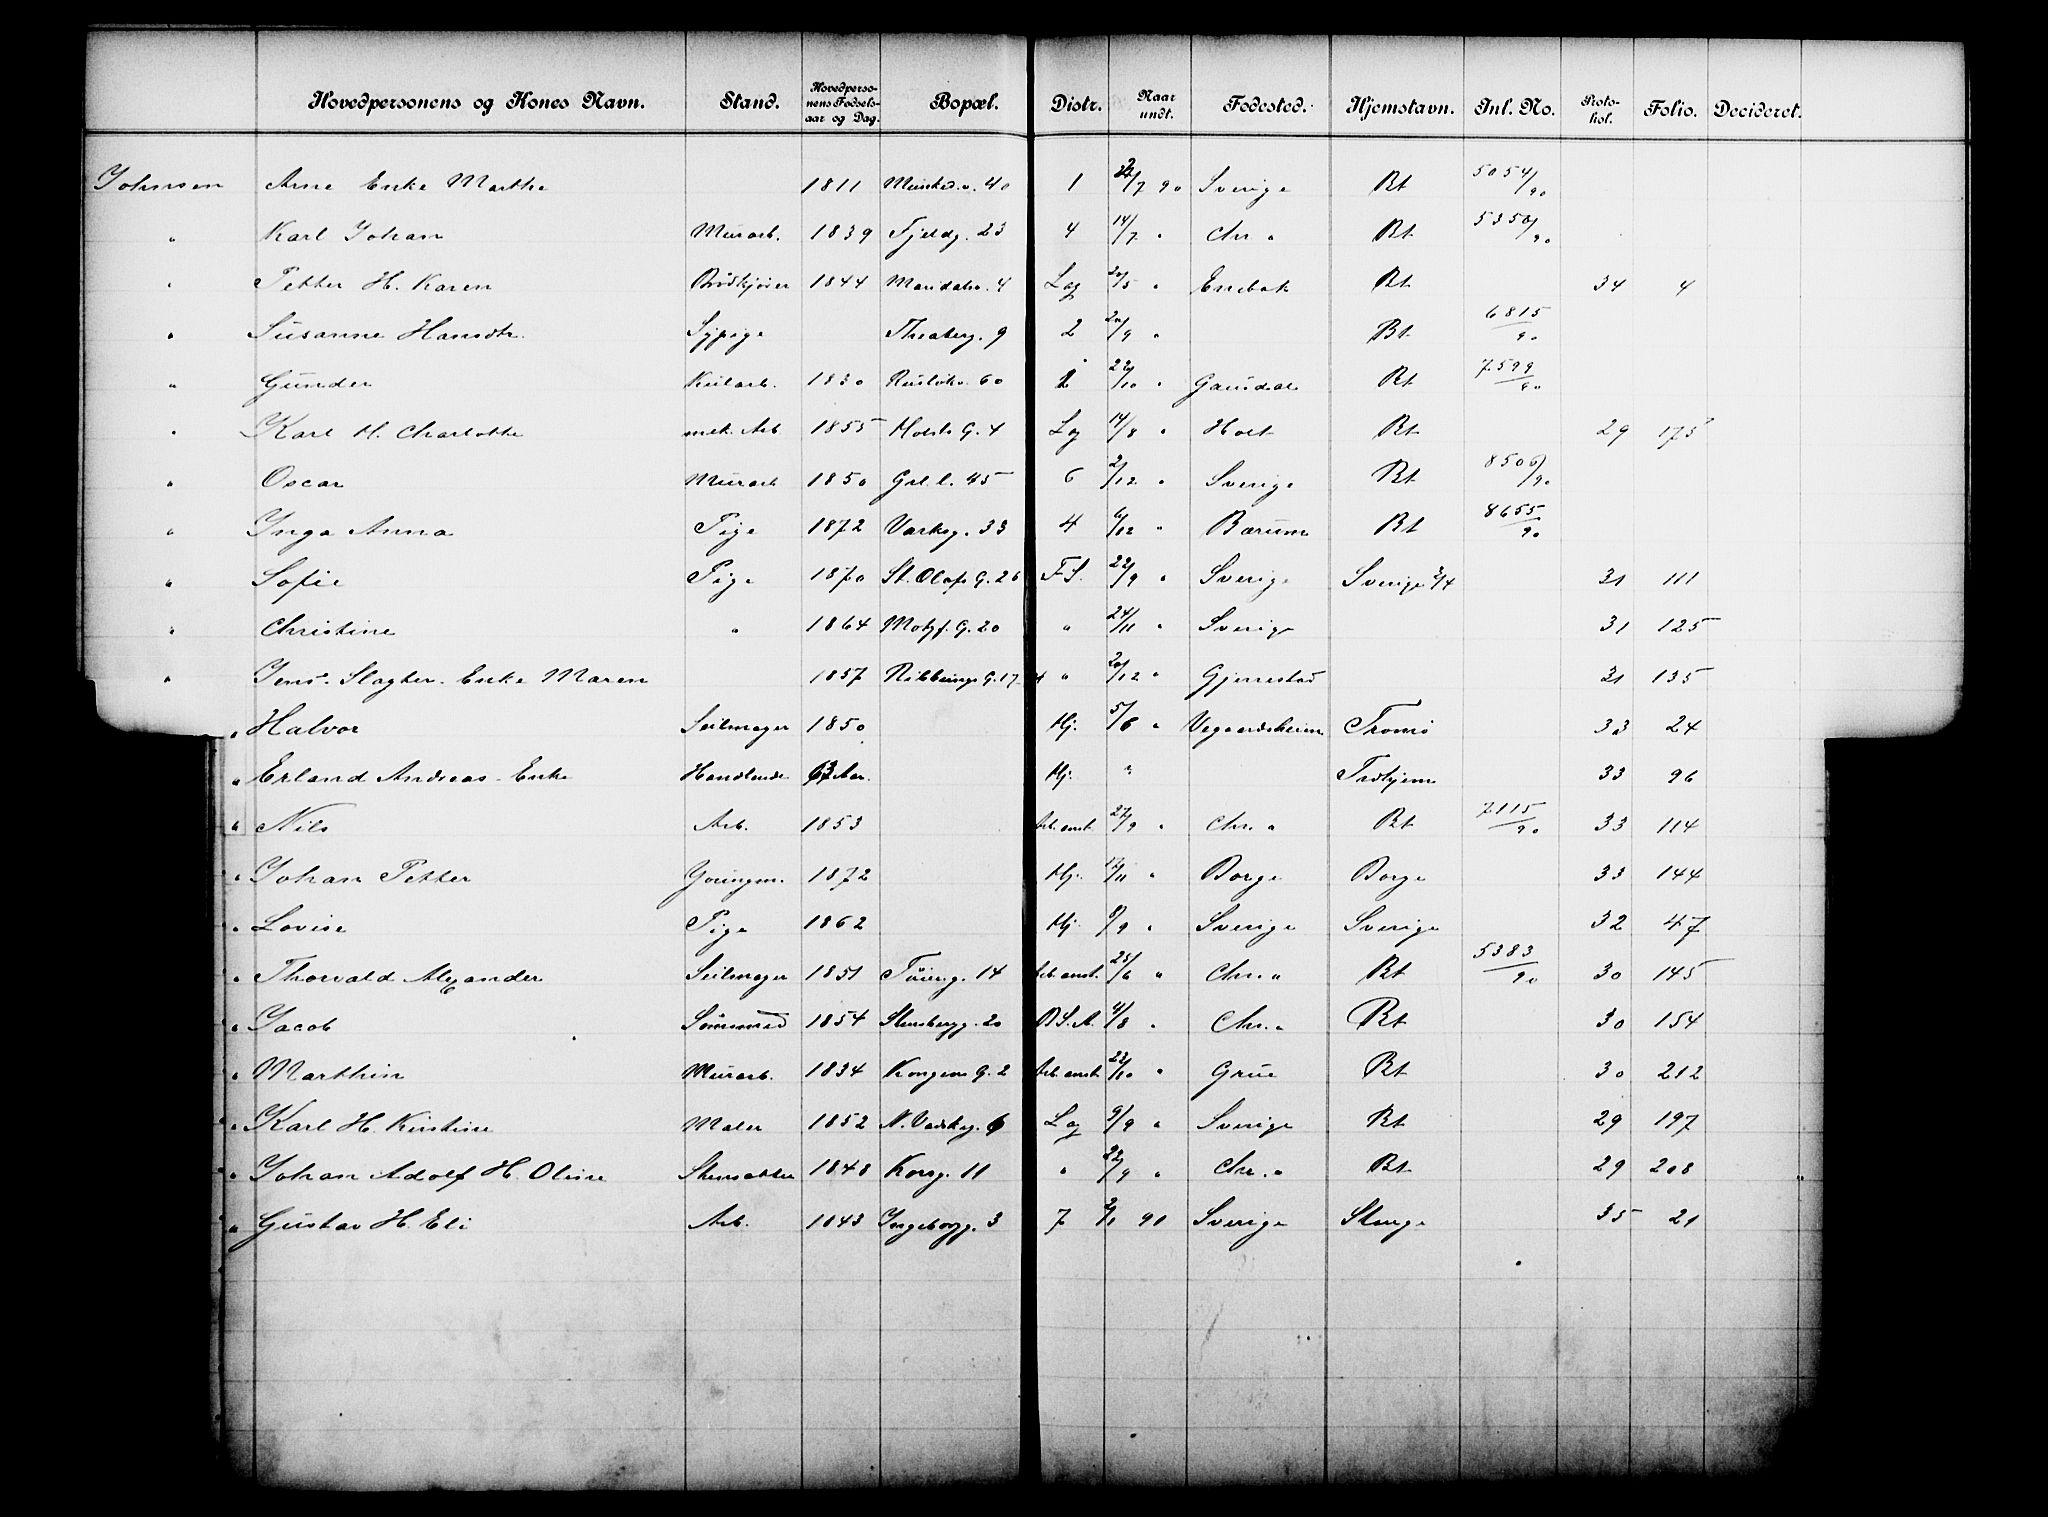 Hovedpersonens og Kones Navn. Stand. Hovedpersonens Fødselsaar og Dag. Bopæl. Distr. Naar undt. Fødested. Hjemstavn. Jnl. No. Protokol. Folio. Decideret.
Johnsen Arne Enke Marthe 1811 40 1 /7 90 Sverige Rt 5054/90
" Karl Johan Murarb. 1839 Fjeldg. 23 4 14/7 " Chr. a Rt 5350/90
" Petter H. Karen Brødkjører 1844 Maridalsv. 4 Lag 20/5 " Enebak Rt 34 4
" Susanne Hansdtr. Sypige Theaterg. 9 2 20/9 " Rt 6815/90
" Gunder Kularb. 1830 Ruseløkv. 60 1 22/10 " Gausdal Rt 7599/90
" Karl H. Charlotte mek. Arb 1855 Holsts G. 4 Lag 14/8 " Holt Rt 29 175
" Oscar Murarb 1850 Grl. l. 45 6 2/12 " Sverige Rt 8506/90
" Inga Anna Pige 1872 33 4 6/12 " Bærum Rt 8655/90
" Sofie Pige 1870 St. Olafs G. 26 F S. 22/9 " Sverige Sverige 3/4 31 111
" Christine " 1864 Motzf. G. 20 " 24/11 " Sverige 31 125
" Jens. Slagter. Enke Maren 1857 G. 17 " 20/12 " Gjerrestad 31 135
" Halvor Seilmager 1850 Hj. 5/6 " Vegaardsheien Tromø 33 24
" Erland Andreas. Enke Handlende Aar. Hj. " Trdhjem 33 96
" Nils Arb. 1853 Arb. anst. 27/9 " Chr. a Rt 7115/90 33 114
" Johan Petter Youngm. 1872 Hj. 17/11 " Borge Borge 33 144
" Lovise Pige 1862 Hj. 8/9 " Sverige Sverige 32 47
" Thorvald Alexander Seilmager 1851 Tøieng. 14 Arb. anst. 25/6 " Chr. a Rt 5383/90 30 145
" Jacob Sømand 1854 Stensbergg. 20 B S. A. 4/8 " Chr. a Rt 30 154
" Marthin Murarb. 1834 Kongens G. 2 Arb. anst. 22/10 " Grue Rt 30 212
" Karl H. Kirstine Maler 1852 N. Vaskeg. 6 Lag 9/9 " Sverige Rt 29 197
" Johan Adolf H. Oline Stensætter 1848 Korsg. 11 " 22/9 " Chr. a Rt 29 208
" Gustav H. Eli Arb. 1843 Ingeborgg. 3 7 2/1 90 Sverige Stange 35 21